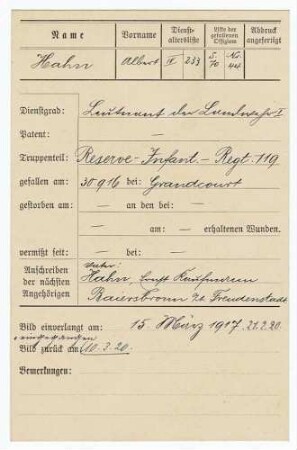 Name Vorname Dienst- altersliste Liste der gefallenen Offiziere Abdruck angefertigt
Hahn Albert II 233 S. 70 Nr. 44
Dienstgrad: Leutnant der Landwehr I
Patent: —
Truppenteil: Reserve-Infant.-Regt. 119
gefallen am: 30 9 16 bei: Grandcourt
gestorben am: — an den bei: —
— am: — erhaltenen Wunden.
vermißt seit: — bei: —
Anschreiben
der nächsten
Angehörigen
Hahn, Kaufmann
Baiersbronn Freudenstadt
Bild einverlangt am: 15. März 1917. 21.2.20.
eingegangen
Bild zurück am: 10.3.20.
Bemerkungen: